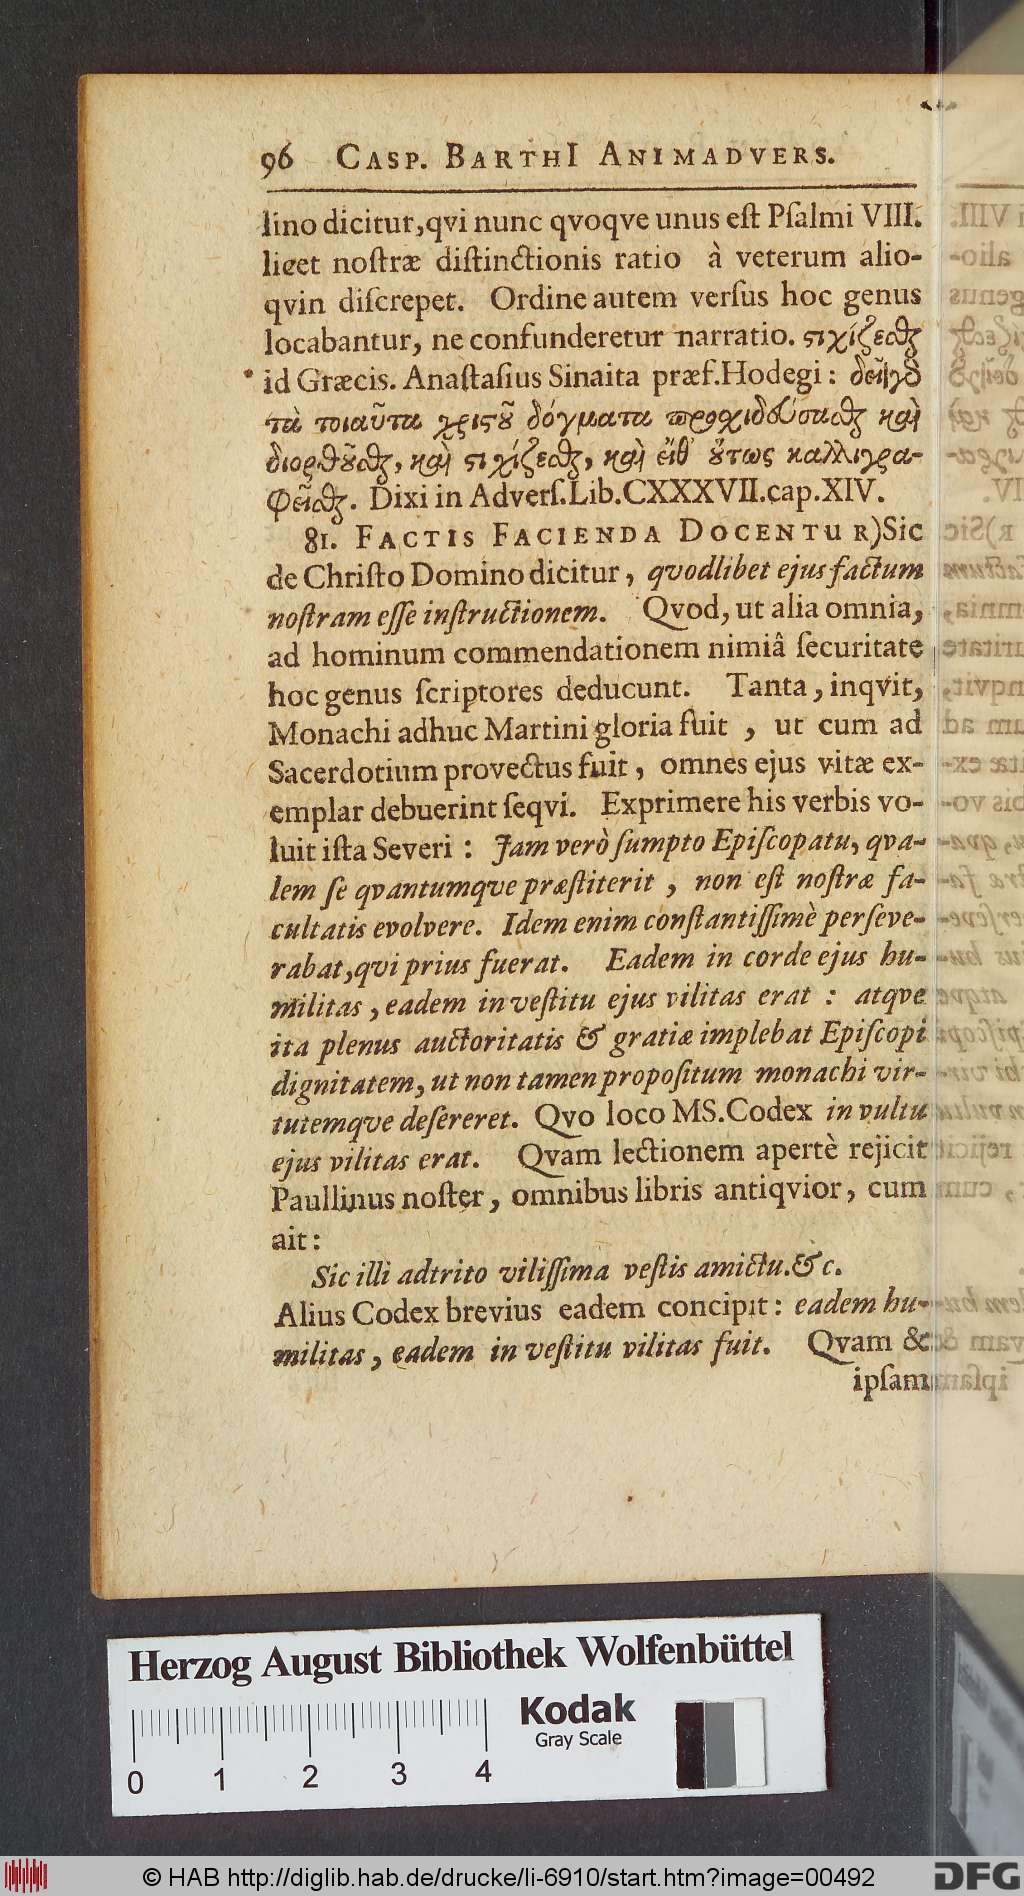 96 CASP. BARTHI ANIMADVERS.
lino dicitur, qvi nunc qvoqve unus eſt Pſalmi VIII.
licet noſtræ diſtinctionis ratio à veterum alio-
qvin diſcrepet. Ordine autem verſus hoc genus
locabantur, ne confunderetur narratio. ϛιχίζεσθαι
id Græcis. Anaſtaſius Sinaita præf. Hodegi:
τὰ τοιαῦτα χριϛοῦ δόγματα καὶ
διορθοῦσθαι, καὶ ϛιχίζεσθαι, καὶ εἶθ' οὕτως καλλιγρα-
φεῖσθαι. Dixi in Adverſ. Lib. CXXXVII. cap. XIV.
81. FACTIS FACIENDA DOCENTUR) Sic
de Chriſto Domino dicitur, qvodlibet ejus factum
noſtram eſſe inſtructionem. Qvod, ut alia omnia,
ad hominum commendationem nimiâ ſecuritate
hoc genus ſcriptores deducunt. Tanta, inqvit,
Monachi adhuc Martini gloria fuit, ut cum ad
Sacerdotium provectus fuit, omnes ejus vitæ ex-
emplar debuerint ſeqvi. Exprimere his verbis vo-
luit iſta Severi: Jam verò ſumpto Epiſcopatu, qva-
lem ſe qvantumqve præſtiterit, non eſt noſtræ fa-
cultatis evolvere. Idem enim conſtantiſſimè perſeve-
rabat, qvi prius fuerat. Eadem in corde ejus hu-
militas, eadem in veſtitu ejus vilitas erat: atqve
ita plenus auctoritatis & gratiæ implebat Epiſcopi
dignitatem, ut non tamen propoſitum monachi vir-
tutemqve deſereret. Qvo loco MS. Codex in vultu
ejus vilitas erat. Qvam lectionem apertè rejicit
Paullinus noſter, omnibus libris antiqvior, cum
ait:
Sic illi adtrito viliſſima veſtis amictu. &c.
Alius Codex brevius eadem concipit: eadem hu-
militas, eadem in veſtitu vilitas fuit. Qvam &
ipſam
Herzog August Bibliothek Wolfenbüttel
Kodak
Gray Scale
0 1 2 3 4
© HAB http://diglib.hab.de/drucke/li-6910/start.htm?image=00492
DFG